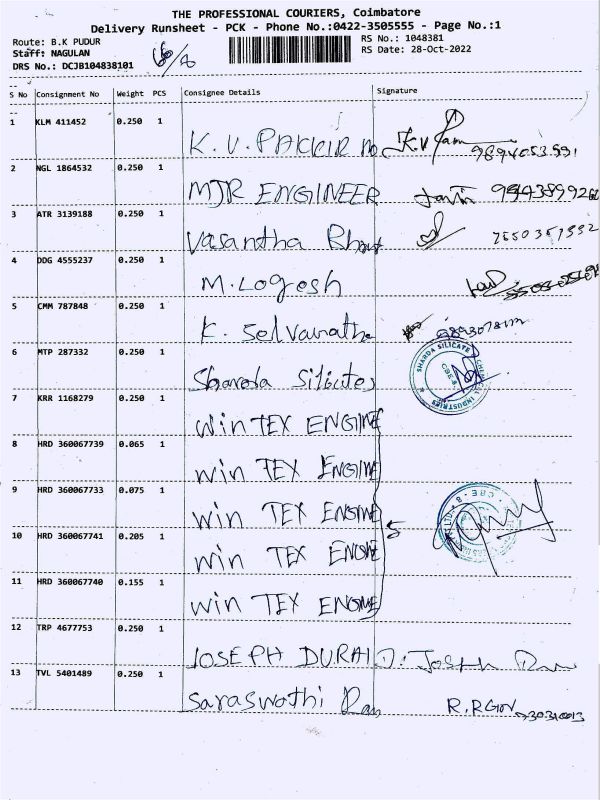 THE PROFESSIONAL COURIERS, Coimbatore
Delivery Runsheet - PCK - Phone No.:0422-3505555 - Page No.:1
Route: B.K PUDUR
RS No.: 1048381
Staff: NAGULAN
RS Date: 28-Oct-2022
DRS No.: DCJB104838101
S No Consignment No Weight PCS Consignee Details Signature
1 KLM 411452 0.250 1 K. V. PAKKIR
2 NGL 1864532 0.250 1 MJR ENGINEER
3 ATR 3139188 0.250 1 Vasantha
4 DDG 4555237 0.250 1 M. Logesh
5 CMM 787848 0.250 1 K. Selvanatha
6 MTP 287332 0.250 1 Sharda Silicates SHARDA SILICATE
7 KRR 1168279 0.250 1 Win TEX ENGINE
8 HRD 360067739 0.065 1 win TEX ENGINE
9 HRD 360067733 0.075 1 win TEX ENGINE 5
10 HRD 360067741 0.205 1 win TEX ENGINE
11 HRD 360067740 0.155 1 win TEX ENGINE
12 TRP 4677753 0.250 1 JOSEPH DURAI D. Joseph
13 TVL 5401489 0.250 1 Saraswathi